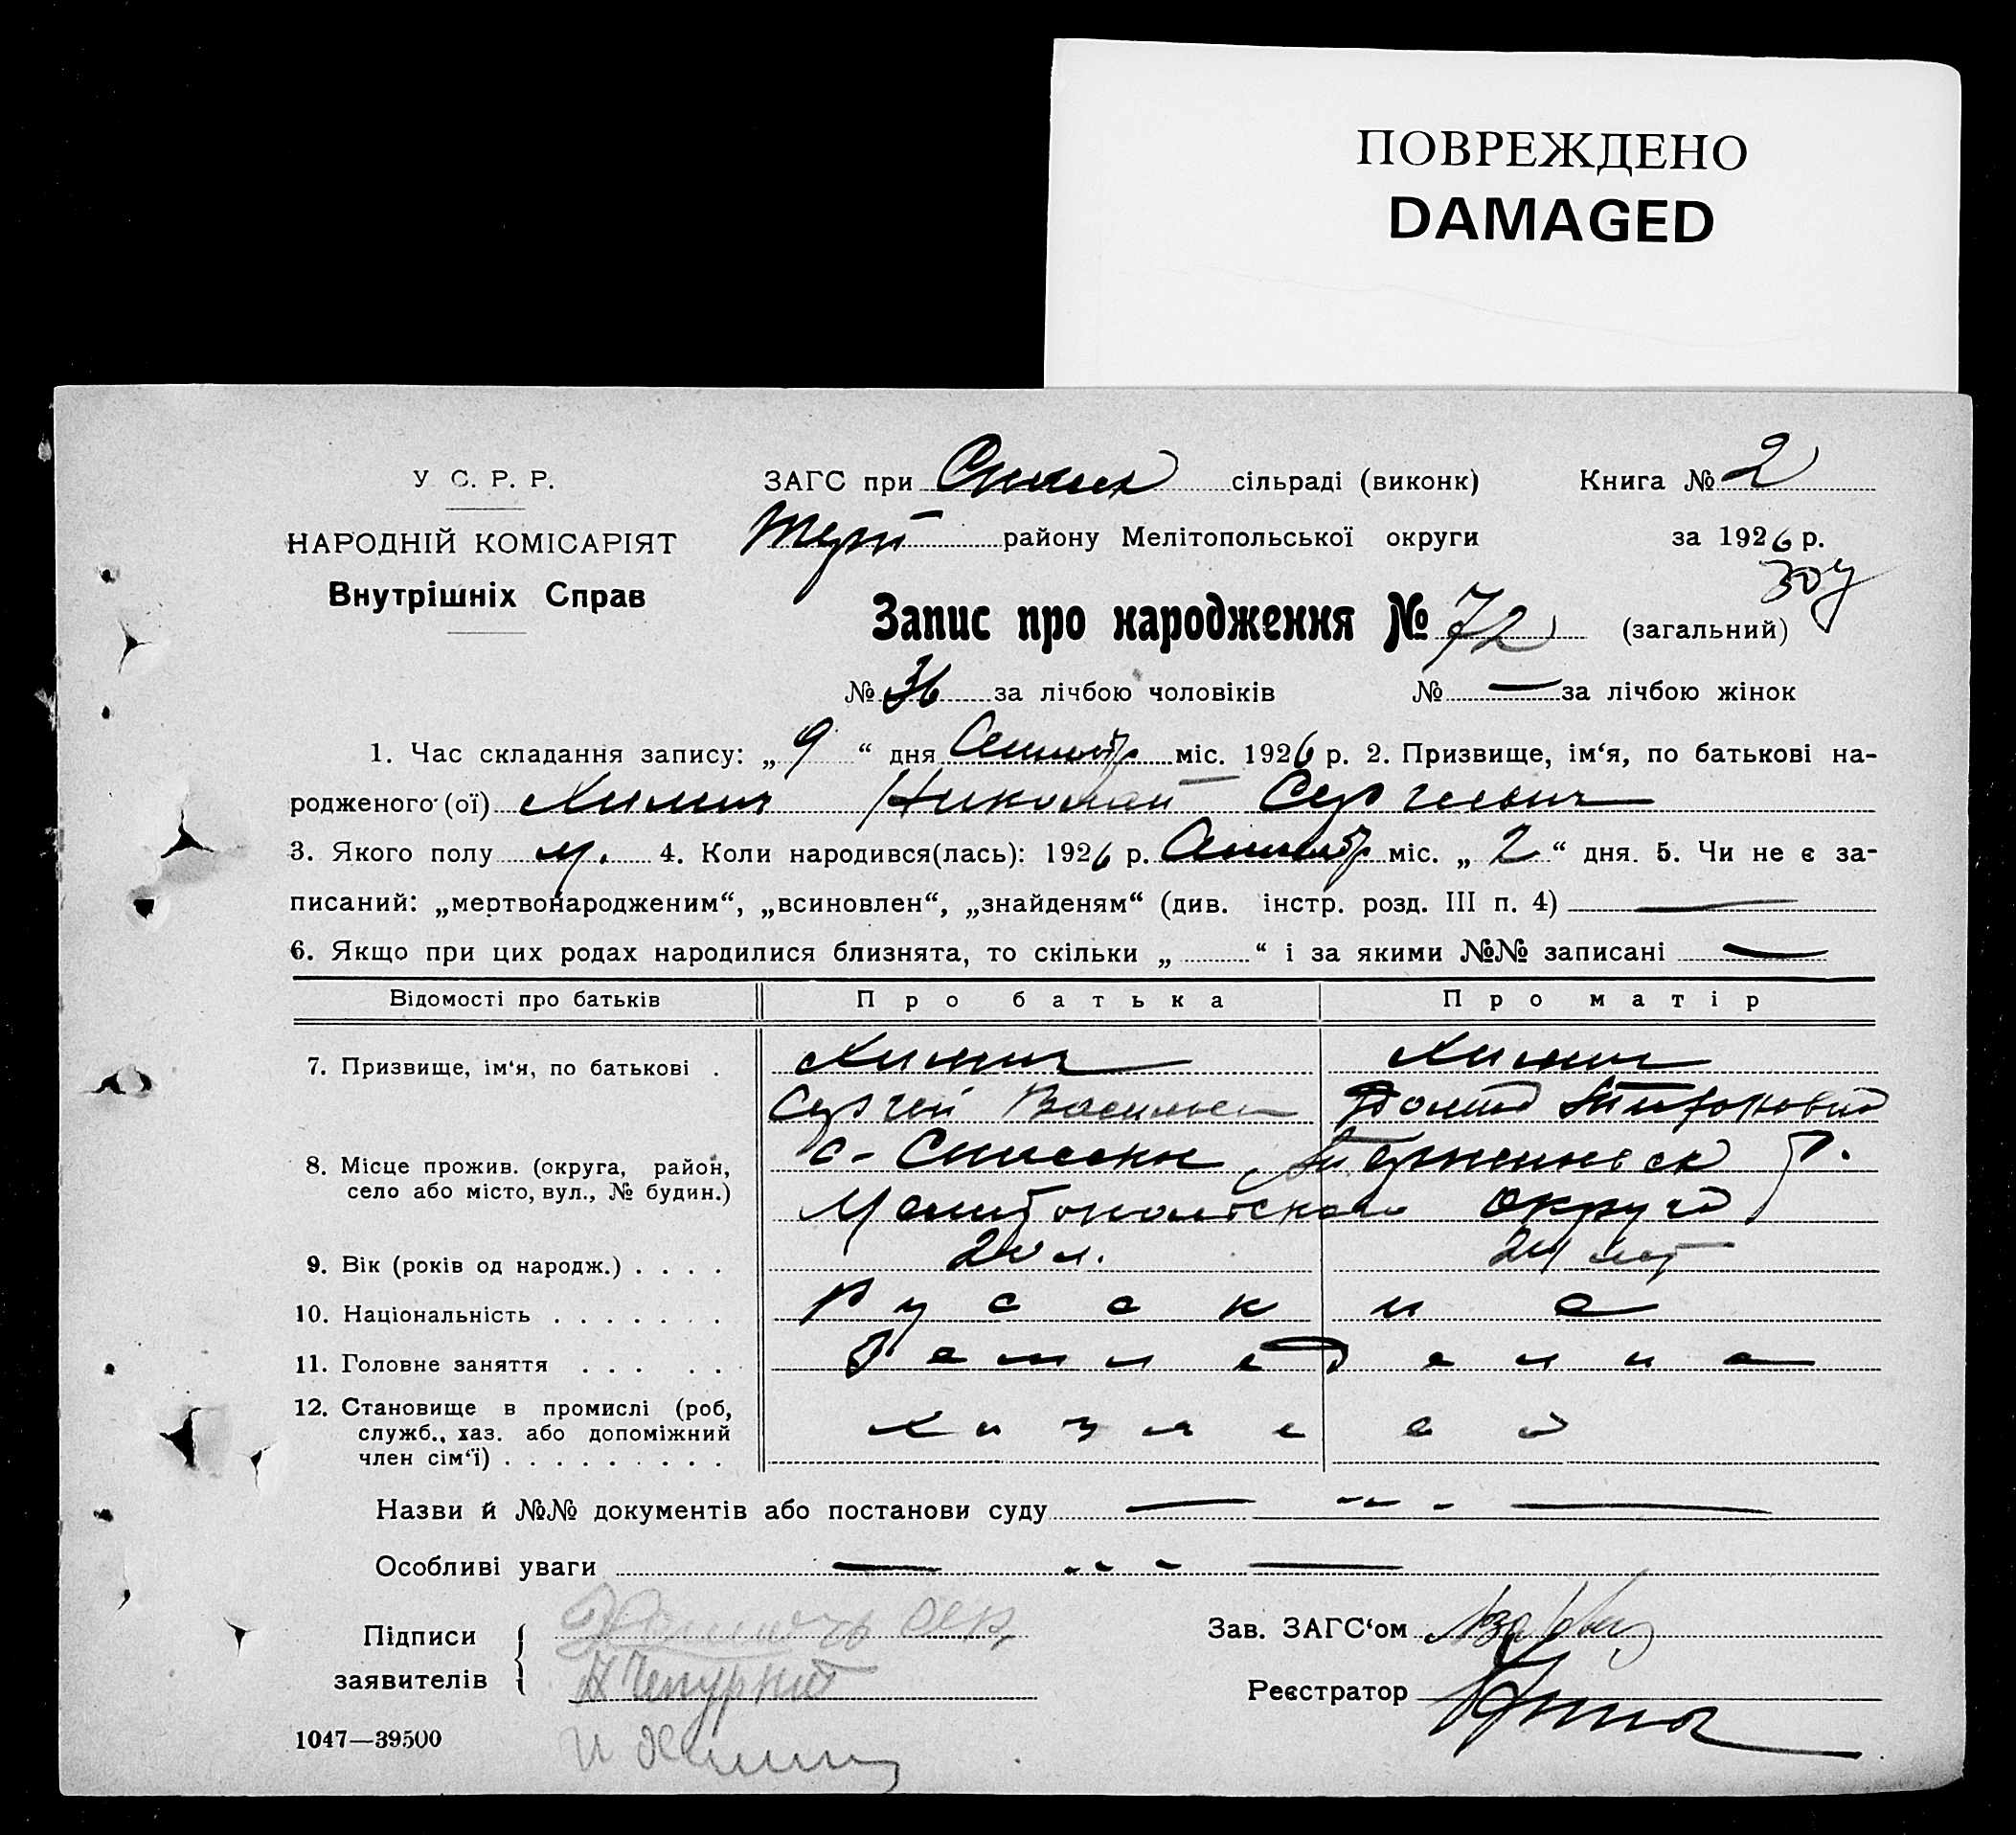 ПОВРЕЖДЕНО
DAMAGED
У С. Р. Р.
НАРОДНІЙ КОМІСАРІЯТ
Внутрішніх Справ
ЗАГС при сільраді (виконк) Книга № 2
району Мелітопольської округи за 1926 р.
Запис про народження № 72 (загальний)
№ 36 за лічбою чоловіків № — за лічбою жінок
1. Час складання запису: „ 9 “ дня Сентябр міс. 1926 р. 2. Призвище, ім‘я, по батькові на-
родженого (ої) Химич Николай Сергеевич
3. Якого полу м. 4. Коли народився(лась): 1926 р. Сентябр міс. „ 2 “ дня. 5. Чи не є за-
писаний: „мертвонародженим“, „всиновлен“, „знайденям“ (див. інстр. розд. III п. 4) —
6. Якщо при цих родах народилися близнята, то скільки „ “ і за якими №№ записані —
Відомості про батьків Про батька Про матір
7. Призвище, ім‘я, по батькові . Химич Химич
Сергей Васильев
8. Місце прожив. (округа, район,
село або місто, вул., № будин.) с-
Мелитопольского округа
9. Вік (років од народж.) . . . . 24 лет
10. Національність . . . . . . . Русские
11. Головне заняття . . . . . Земледелие
12. Становище в промислі (роб,
служб., хаз. або допоміжний
член сім‘ї) . . . . . . . . .
Назви й №№ документів або постанови суду —
Особливі уваги —
Підписи
заявителів Н Чепурний
Зав. ЗАГС‘ом
Реєстратор
1047—39500